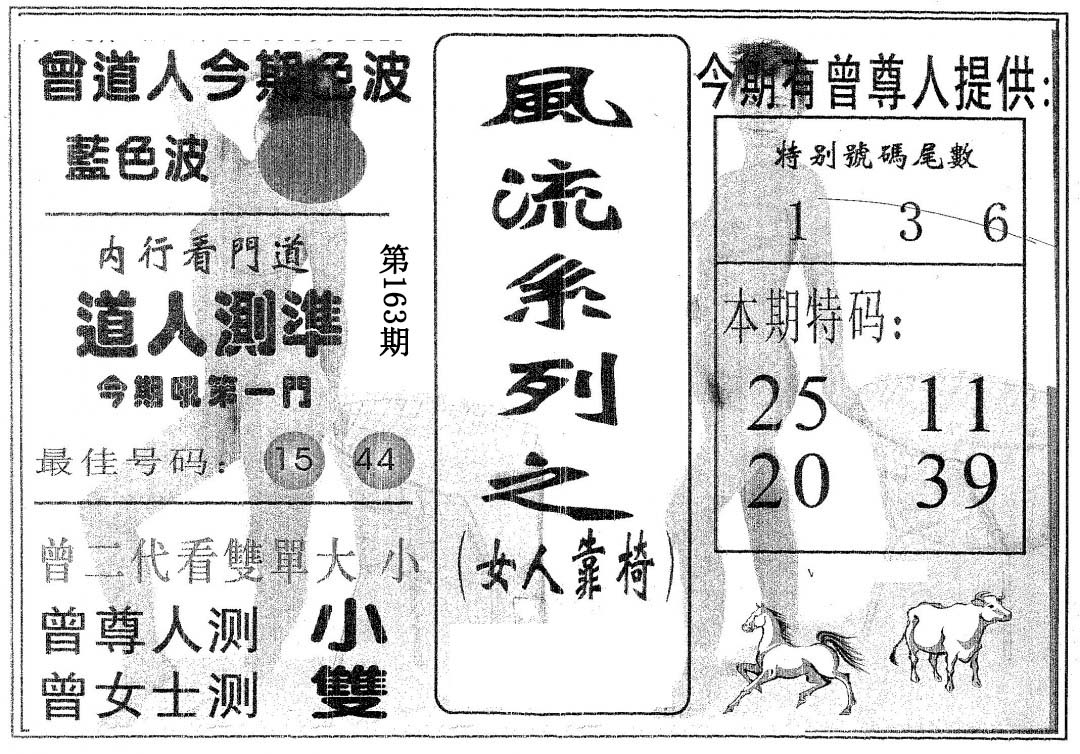 曾道人今期色波
藍色波
內行看門道
道人測準
今期吼第一門
最佳号码：15 44
曾二代看雙單大 小
曾尊人测 小
曾女士测 雙
第163期
風流系列之
（女人靠椅）
今期有曾尊人提供：
特别號碼尾數
1 3 6
本期特码：
25 11
20 39